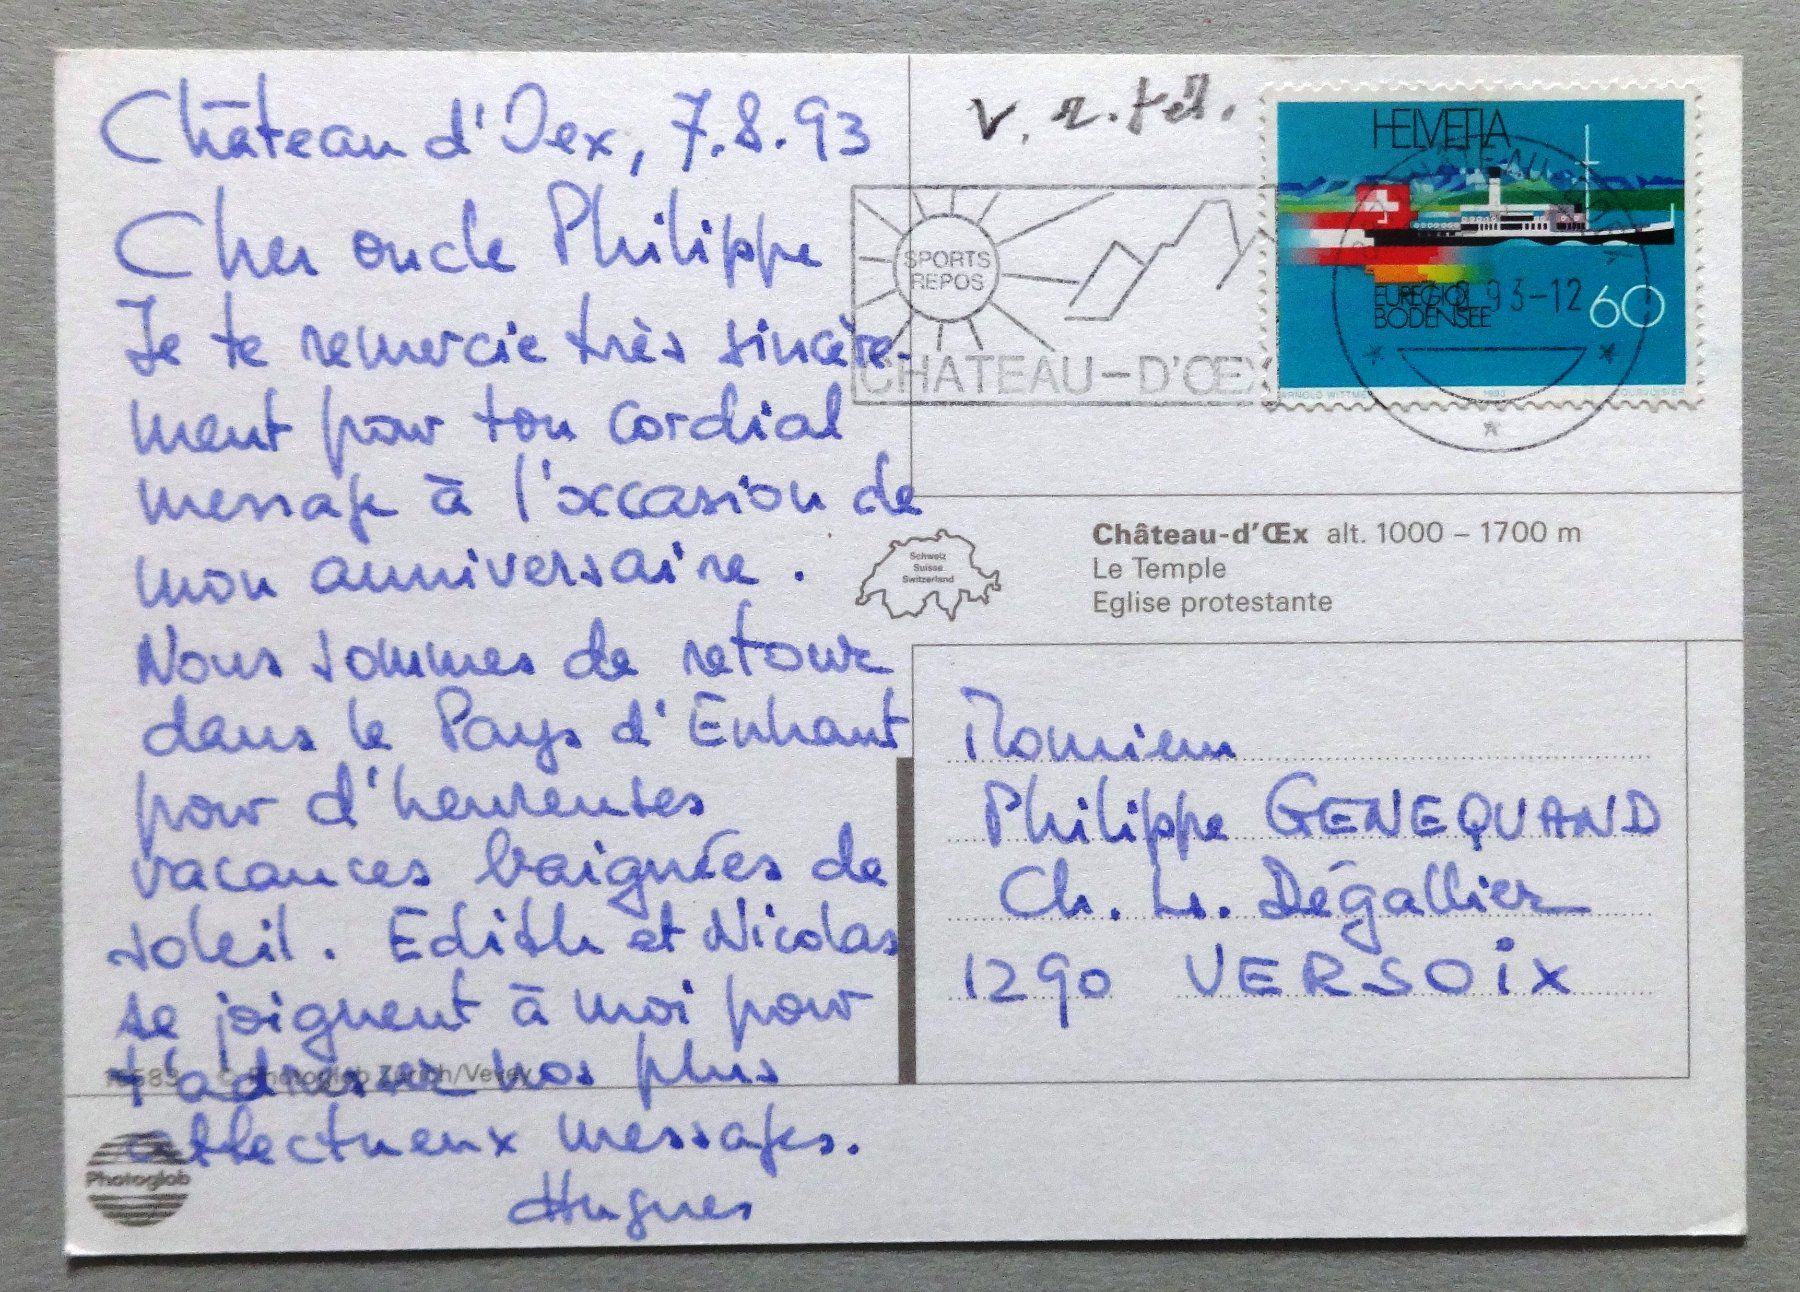 Château d'Oex, 7.8.93
Cher oncle Philippe
Je te remercie très sincère-
ment pour ton cordial
message à l'occasion de
mon anniversaire.
Nous sommes de retour
dans le Pays d'Enhaut
pour d'heureuses
vacances baignées de
soleil. Edith et Nicolas
se joignent à moi pour
t'adresser nos plus
affectueux messages.
Hugues
© Photoglob Zürich/Vevey
Photoglob
v. r. tél.
SPORTS
REPOS
CHATEAU-D'ŒX
HELVETIA
EUREGIO
BODENSEE
60
93-12
ARNOLD WITTMER
1993
COURVOISIER
Schweiz
Suisse
Switzerland
Château-d'Œx alt. 1000 – 1700 m
Le Temple
Eglise protestante
Monsieur
Philippe GENEQUAND
Ch. Ls. Dégallier
1290 VERSOIX